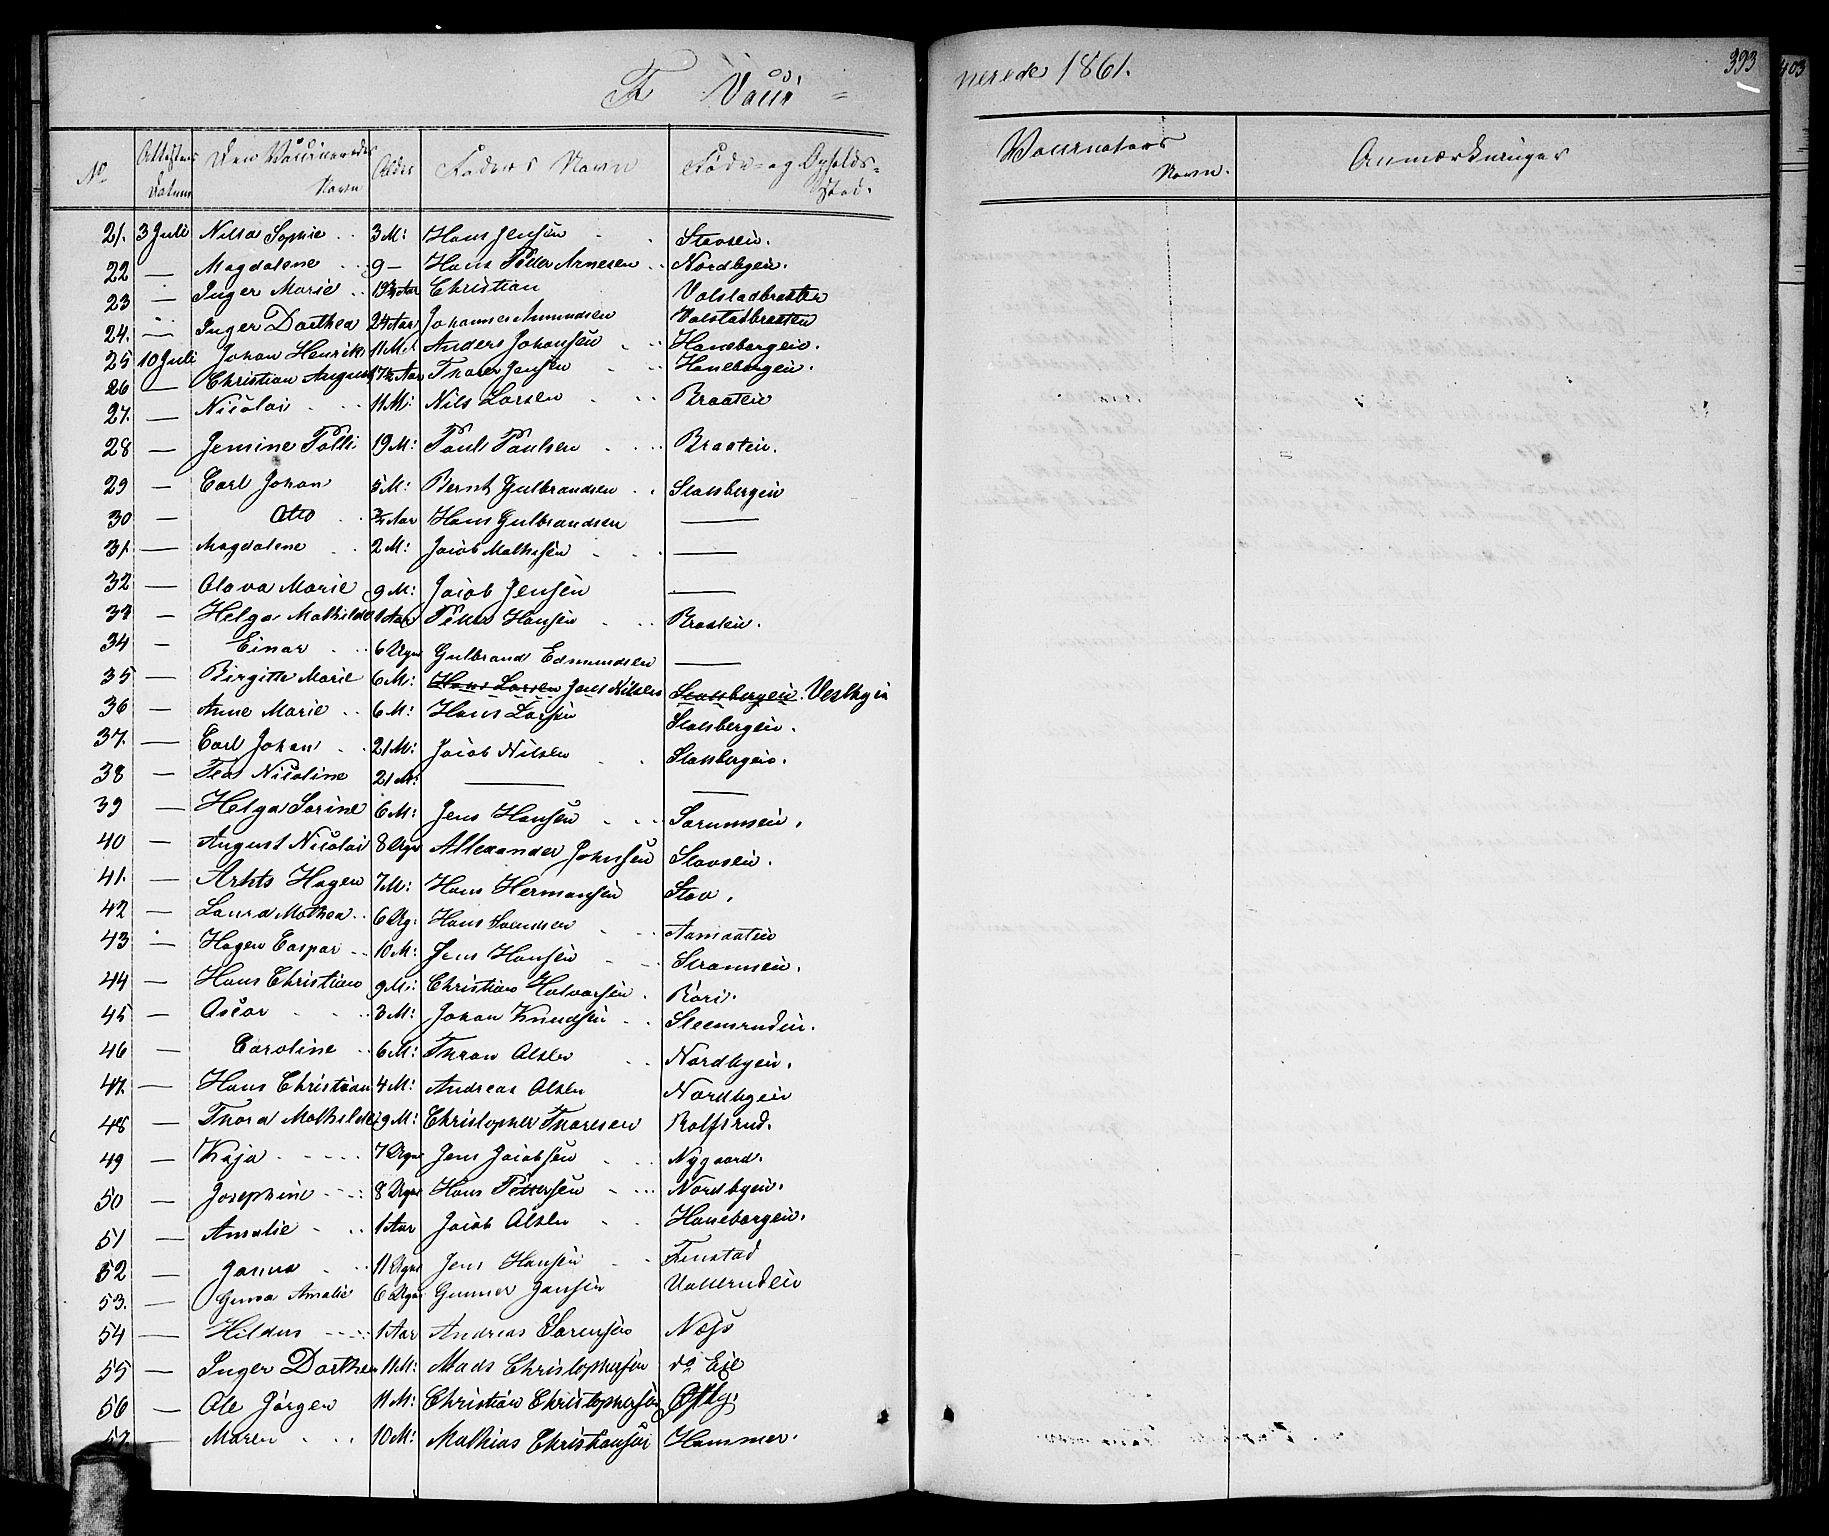 F Vacci = nerede 1861. 393
403
No Attestens Datum Den Vaccineredes Navn Alder Faderens Navn Føde- og Opholds-Sted. Vaccinateurs Navn. Anmærkninger
21. 3 Juli Sophie 3 M: Hans Jensen
22 — Magdalene 9 — Hans Peder Arnesen Nordbyeie.
23 — Inger Marie Christian Valstadbraaten
24. — Inger Dorthea Johannes Amundsen Valstadbraaten
25 10 Juli Johan Henrik 11 M: Anders Johansen Haneborgeie.
26 — Christian August Thorer Jensen Haneborgeie.
27. — Nicolai 11 M: Nils Larsen Braaten
28 — Jensine Palli 19 M: Paul Paulsen Braaten.
29 — Carl Johan 5 M: Bernt Gulbrandsen Stalsbergeie
30 — Otto Hans Gulbrandsen —
31 — Magdalene 2 M: Jacob Mathisen —
32 — Olava Marie 9 M: Jacob Jensen —
33 — Helga Mathilde 1 Aar Petter Hansen Braaten.
34 — Einar 6 Uger Gulbrand Edmundsen —
35 — Birgitte Marie 6 M: Hans Larsen Joel Nilsen Stalsbergeie. Vestbyeie
36 — Anne Marie 6 M: Hans Larsen Stalsbergeie.
37. — Carl Johan 21 M: Jacob Nilsen Stalsbergeie.
38 — Thea Nicoline 21 M: — —
39 — Helga Sorine 6 M: Jens Hansen
40 — August Nicolai 8 Uger Allexander Johnsen
41. — Hagen 7 M: Hans Hermansen Stav.
42 — Laura Mathea 6 Ug: Hans Svendsen Aamaaten
43 — Hagen Caspar 10 M: Jens Hansen
44 — Hans Christian 9 M: Christian Halvorsen
45 — Oscar 3 M: Johan Knudsen Steensrudeie.
46 — Caroline 6 M: Thron Olsen Nordbyeie.
47. — Hans Christian 4 M: Andreas Olsen Nordbyeie
48 — Thora Mathilde 9 M: Christopher Thoresen Rolfsrud.
49 — Kaja 7 Uger Jens Jacobsen Nygaard.
50 — Josephine 8 Uger Hans Pettersen Nordbyeie.
51 — Amalie 1 Aar Jacob Olsen Haneborgeie.
52 — Janna 11 Uger Jens Hansen Finstad
53. — Amalie 6 Uger Gunner Jansen
54 — Hildus 1 Aar Andreas Sørensen Næss
55 — Inger Dorthea 11 M: Mads Christophersen do Eie
56 — Ole Jørgen 11 M: Christian Christophersen Østby.
57. — Maren 10 M: Mathias Christiansen Hammer.